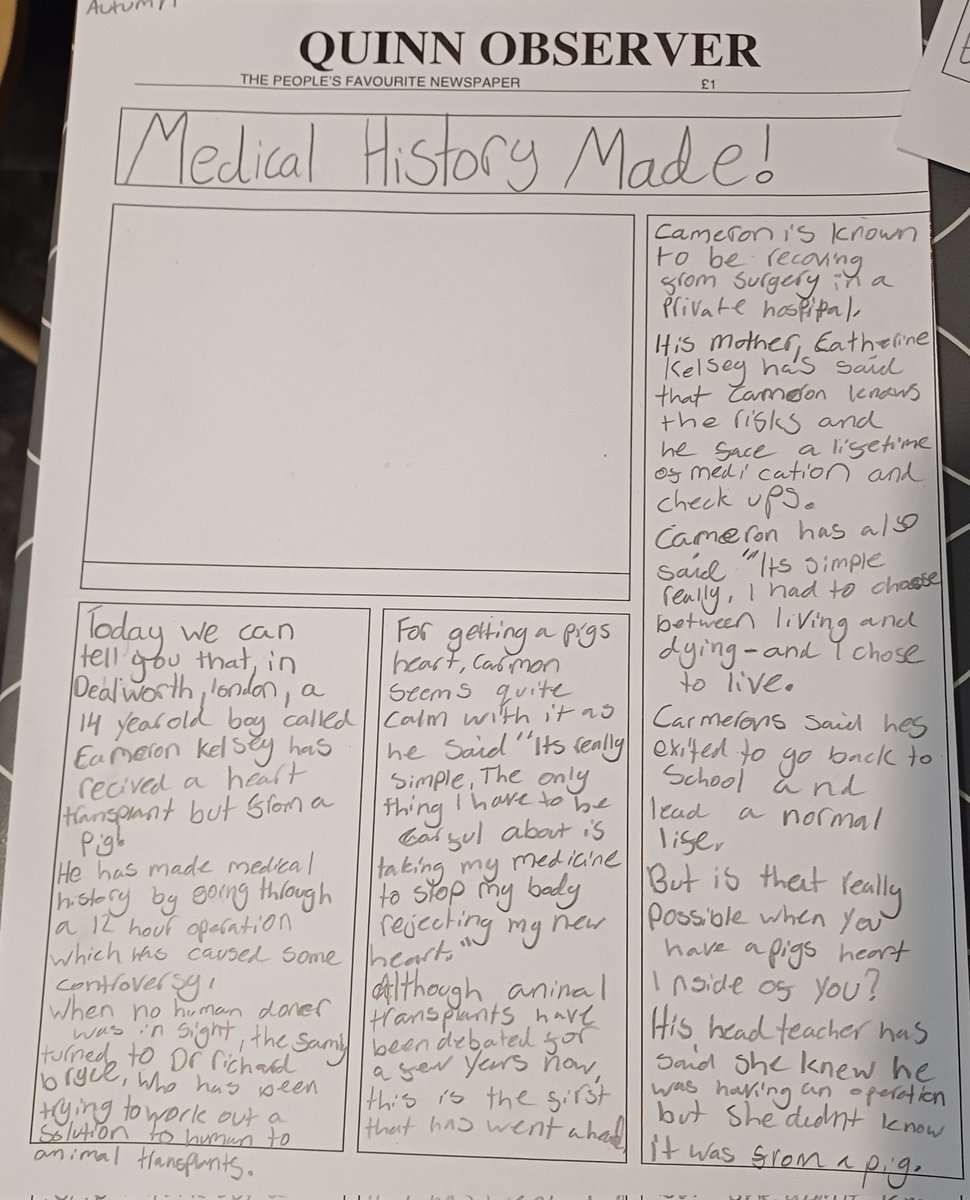 Autumn
QUINN OBSERVER
THE PEOPLE'S FAVOURITE NEWSPAPER £1
Medical History Made!
Today we can
tell you that, in
Dealworth, london, a
14 year old boy called
Cameron Kelsey has
recived a heart
transplant but from a
pig!
He has made medical
history by going through
a 12 hour operation
which has caused some
controversy,
When no human doner
was in sight, the family
turned to Dr richard
bryce, who has been
trying to work out a
solution to human to
animal transplants.
For getting a pigs
heart, Carmon
seems quite
calm with it as
he said "Its really
simple, The only
thing I have to be
carful about is
taking my medicine
to stop my body
rejecting my new
heart."
Although animal
transplants have
been debated for
a few years now,
this is the first
that has went ahead
Cameron is known
to be recoving
from surgery in a
Private hospipal.
His mother, Catherine
Kelsey has said
that Cameron knows
the risks and
he face a lifetime
of medication and
check ups.
Cameron has also
said "Its simple
really, I had to choose
between living and
dying - and I chose
to live.
Carmerons said hes
exited to go back to
School and
lead a normal
life.
But is that really
possible when you
have a pigs heart
Inside of you?
His head teacher has
said she knew he
was having an operation
but she didnt know
it was from a pig.